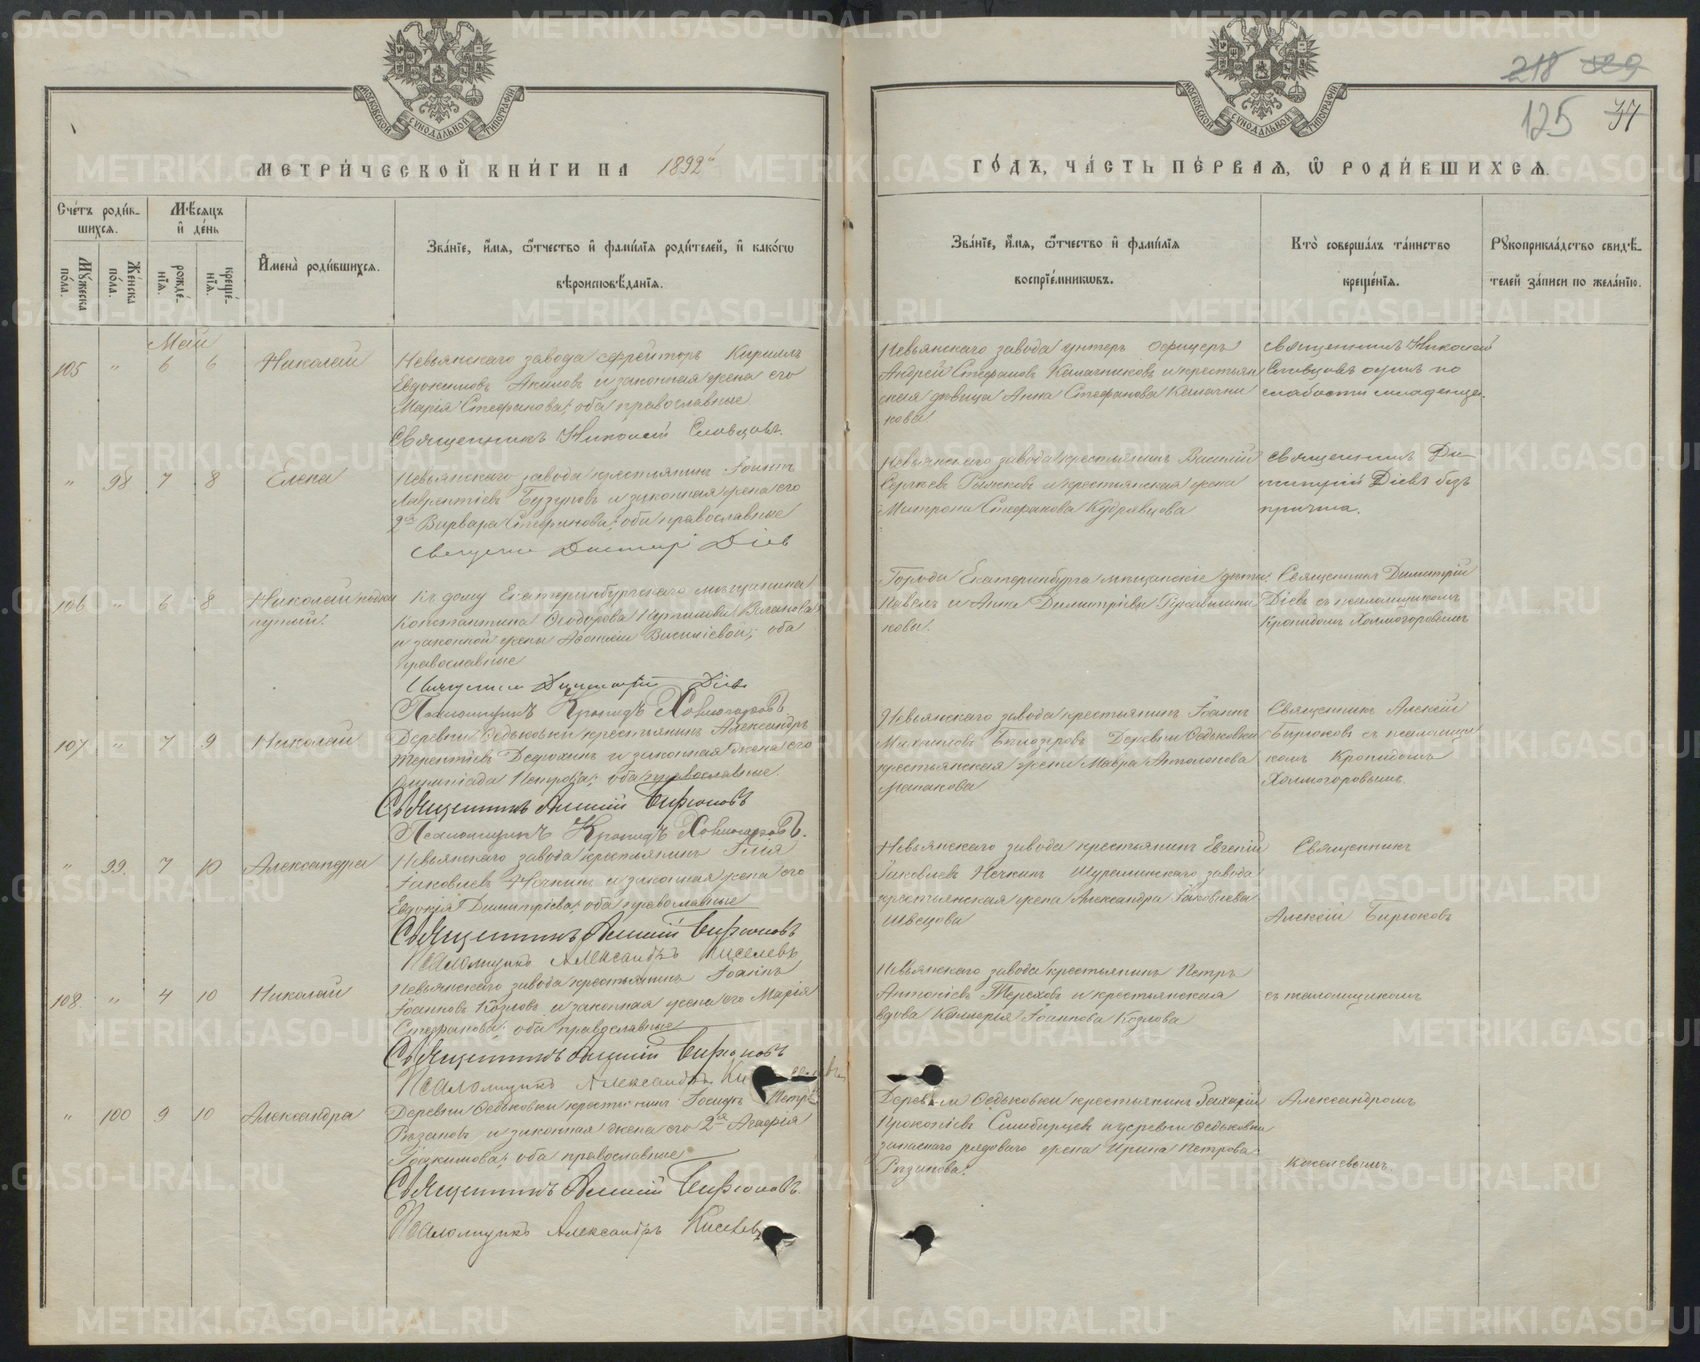 218 529
125 77
МОСКОВСКОЙ СѴНОДАЛЬНОЙ ТИПОГРАФІИ
МОСКОВСКОЙ СѴНОДАЛЬНОЙ ТИПОГРАФІИ
МЕТРИ́ЧЕСКОЙ КНИ́ГИ НА 1892й
ГО́ДЪ, ЧА́СТЬ ПЕ́РВАѦ, Ѡ҆ РОДИ́ВШИХСѦ.
Сче́тъ роди́в-
шихсѧ.
Мꙋжеска по́ла.
Же́нска по́ла.
Мѣ́сѧцъ и҆ де́нь
рожде́-
нїѧ.
креще́-
нїѧ.
И҆мена̀ роди́вшихсѧ.
Зва́нїе, и҆́мѧ, ѻ҆́тчество и҆ фами́лїѧ роди́телей, и҆ како́гѡ
вѣроисповѣ́данїѧ.
Зва́нїе, и҆́мѧ, ѻ҆́тчество и҆ фами́лїѧ
воспрїе́мникѡвъ.
Кто̀ соверша́лъ та́инство
креще́нїѧ.
Рꙋкоприкла́дство свидѣ́-
телей за́писи по жела́нїю.
Май
105 " 6 6 Николай
Невьянскаго завода ефрейторъ Кириллъ
Евдокимовъ Акиловъ и законная жена его
Марія Стефанова; оба православные
Священникъ Николай Словцовъ.
Невьянскаго завода унтеръ офицеръ
Андрей Стефановъ Калачниковъ и крестьян
ская дѣвица Анна Стефанова Калачни
кова
священникъ Николай
Словцовъ одинъ по
слабости младенца.
" 98 7 8 Елена
Невьянскаго завода крестьянинъ Іоаннъ
Лаврентіевъ и законная жена его
2я Варвара Стефанова; оба православные
Священн Димитрій Діевъ
Невьянскаго завода крестьянинъ Василій
Сергѣевъ и крестьянская жена
Матрона Стефанова Кудрявцова
священникъ Ди-
митрій Діевъ безъ
причта.
106 " 6 8 Николай подки
нутый.
Къ дому Екатеринбургскаго мѣщанина
Константина Ѳеодорова
и законной жены Василіевой; оба
православные
Священн Димитрій Діевъ
Псаломщикъ Кронидъ Холмогоровъ
Города Екатеринбурга мѣщанскіе дѣти
Павелъ и Анна Димитріевы
ковы.
Священникъ Димитрій
Діевъ съ псаломщикомъ
Кронидомъ Холмогоровымъ
107 " 7 9 Николай
Деревни Ѳедьковки крестьянинъ Александръ
Терентіевъ Дедюхинъ и законная жена его
Олимпіада Петрова; оба православные.
Священникъ Алексій Бирюковъ
Псаломщикъ Кронидъ Холмогоровъ.
Невьянскаго завода крестьянинъ Іоаннъ
Михаиловъ Бѣлозеровъ Деревни Ѳедьковки
крестьянская жена Мавра Антонова
Священникъ Алексій
Бирюковъ съ псаломщи
комъ Кронидомъ
Холмогоровымъ.
" 99. 7 10 Александра
Невьянскаго завода крестьянинъ Илія
Іаковлевъ Нечкинъ и законная жена его
Евдокія Димитріева; оба православные
Священникъ Алексій Бирюковъ
Псаломщикъ Александръ Киселевъ
Невьянскаго завода крестьянинъ Евгеній
Іаковлевъ Нечкинъ Шуралинскаго завода
крестьянская жена Александра Іаковлева
Швецова
Священникъ
Алексій Бирюковъ
108. " 4 10 Николай
Невьянскаго завода крестьянинъ Іоаннъ
Іоанновъ Козловъ и законная жена его Марія
Стефанова; оба православные
Священникъ Алексій Бирюковъ
Псаломщикъ Александръ
Невьянскаго завода крестьянинъ Петръ
Антоніевъ Тереховъ и крестьянская
вдова Іоаннова Козлова
съ псаломщикомъ
" 100 9 10 Александра
Деревни Ѳедьковки крестьянинъ Іосифъ Петр
и законная жена его 2я Агафія
Іоакимова; оба православные
Священникъ Алексій Бирюковъ.
Псаломщикъ Александръ Киселевъ
Деревни Ѳедьковки крестьянинъ Захарій
Прокопіевъ Симбирцевъ и деревни Ѳедьковки
запаснаго рядоваго жена Ирина Петрова
Александромъ
Киселевымъ.
METRIKI.GASO-URAL.RU